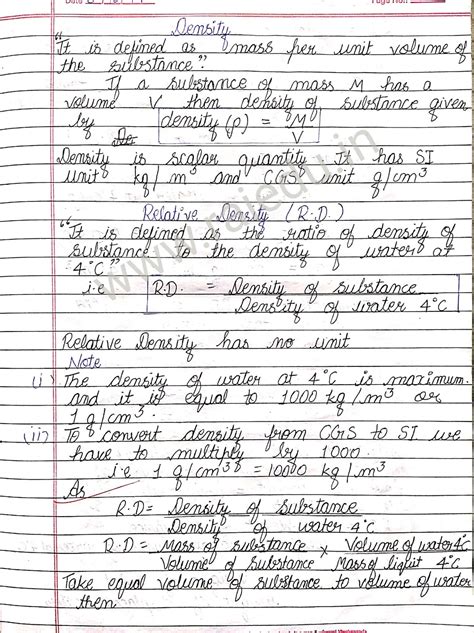 Density
"It is defined as mass per unit volume of
the substance."
If a substance of mass M has a
volume V then density of substance given
by density (ρ) = M/V
Density is scalar quantity. It has SI
unit kg/m³ and CGS unit g/cm³
Relative Density (R.D.)
"It is defined as the ratio of density of
substance to the density of water at
4°C"
i.e R.D = Density of substance
Density of water 4°C
Relative Density has no unit
Note
(i) The density of water at 4°C is maximum
and it is equal to 1000 kg/m³ or
1 g/cm³.
(ii) To convert density from CGS to SI we
have to multiply by 1000.
i.e 1 g/cm³ = 1000 kg/m³
As
R.D = Density of substance
Density of water 4°C
R.D = Mass of substance × Volume of water 4°C
Volume of substance Mass of liquit 4°C
Take equal volume of substance to volume of water
then
www.rajedu.in